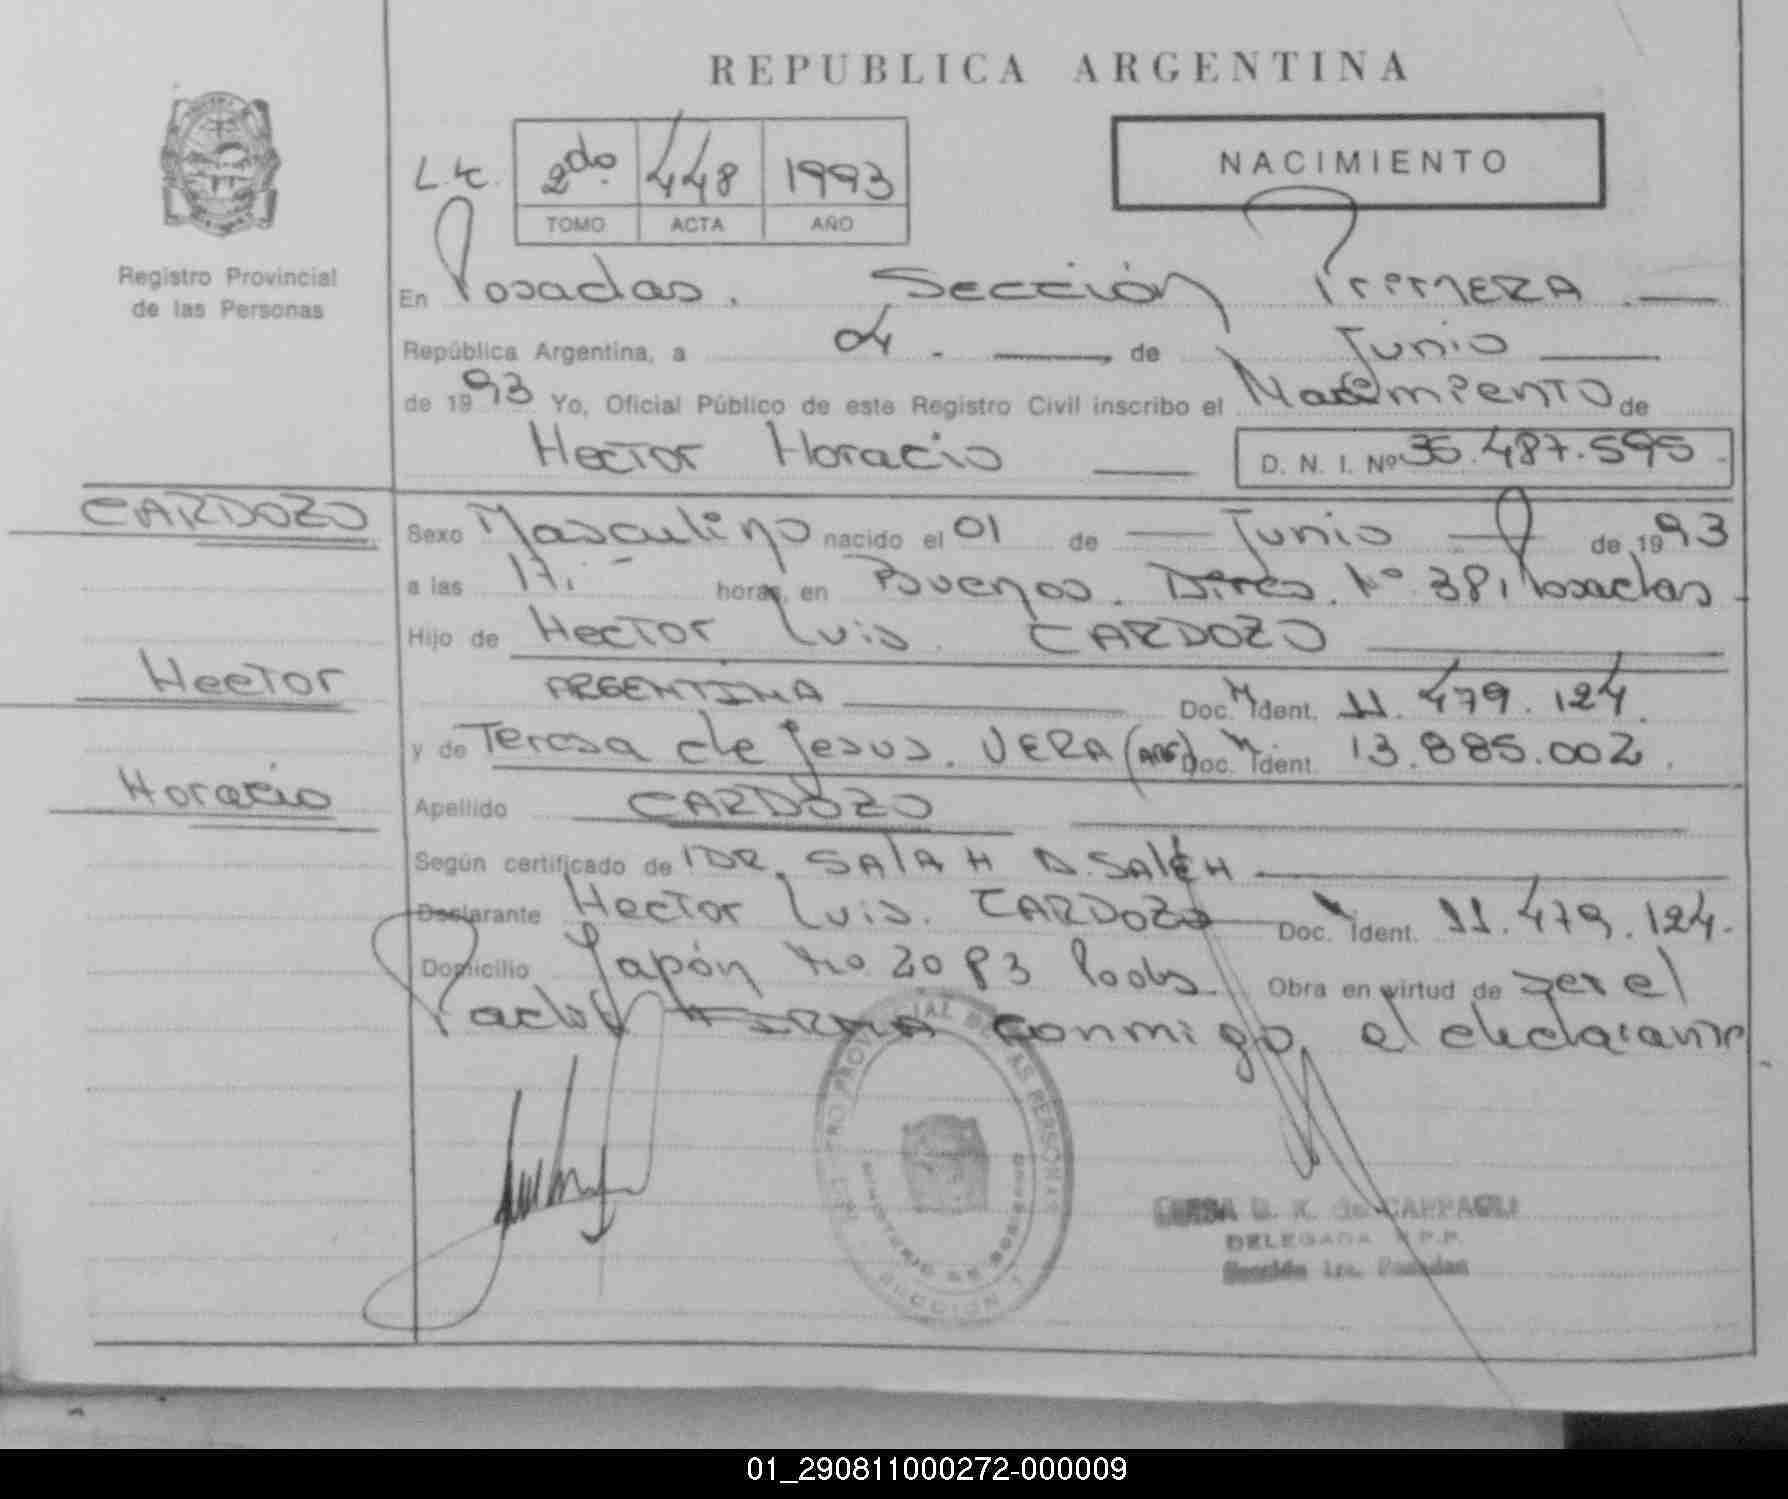 REPUBLICA ARGENTINA
NACIMIENTO
2do. 448 1993
TOMO ACTA AÑO
Registro Provincial
de las Personas
En Posadas. Sección Primera.
República Argentina, a 04. de Junio
de 1993 Yo, Oficial Público de este Registro Civil inscribo el Nacimiento de
Hector Horacio D. N. I. Nº 35.487.595.
CARDOZO
Sexo Masculino nacido el 01 de Junio de 1993
a las 17. horas, en Buenos Aires. Nº 38, Posadas
Hijo de Hector Luis. CARDOZO
Hector
ARGENTINA Doc. Ident. 11.479.124.
y de Teresa de Jesus. VERA (ARG) Doc. Ident. 13.885.002.
Horacio
Apellido CARDOZO
Según certificado de DR. SALAH D. SALEH
Declarante Hector Luis. CARDOZO Doc. Ident. 11.479.124.
Domicilio Japón No 2083 Pdas. Obra en virtud de ser el
Padre FIRMA conmigo, el declarante
MINISTERIO DE GOBIERNO
de CAPPAGLI
DELEGADA R.P.P.
Sección 1ra. Posadas
01_290811000272-000009